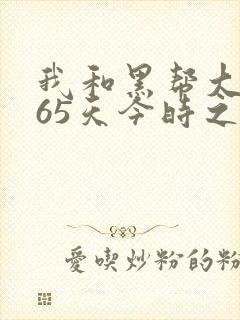 我和黑帮太
65天今時之
愛喫炒粉的粉